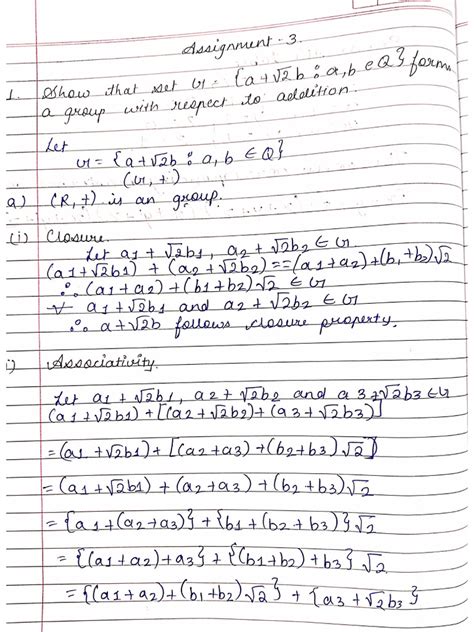 Assignment - 3.
1. Show that set G = {a+√2b : a,b ∈ Q} form
a group with respect to addition.
Let
G = {a+√2b : a, b ∈ Q}
(G, +)
a) (R, +) is an group.
(i) Closure.
Let a1 + √2b1, a2 + √2b2 ∈ G
(a1+√2b1) + (a2+√2b2) == (a1+a2)+(b1+b2)√2
∴ (a1+a2)+(b1+b2)√2 ∈ G
∀ a1+√2b1 and a2+√2b2 ∈ G
∴ a+√2b follows closure property.
i) Associativity.
Let a1+√2b1, a2+√2b2 and a3+√2b3 ∈ G
(a1+√2b1)+[(a2+√2b2)+(a3+√2b3)]
= (a1+√2b1)+[(a2+a3)+(b2+b3)√2]
= (a1+√2b1) + (a2+a3) + (b2+b3)√2
= {a1+(a2+a3)} + {b1+(b2+b3)}√2
= {(a1+a2)+a3} + {(b1+b2)+b3}√2
= {(a1+a2)+(b1+b2)√2} + {a3+√2b3}